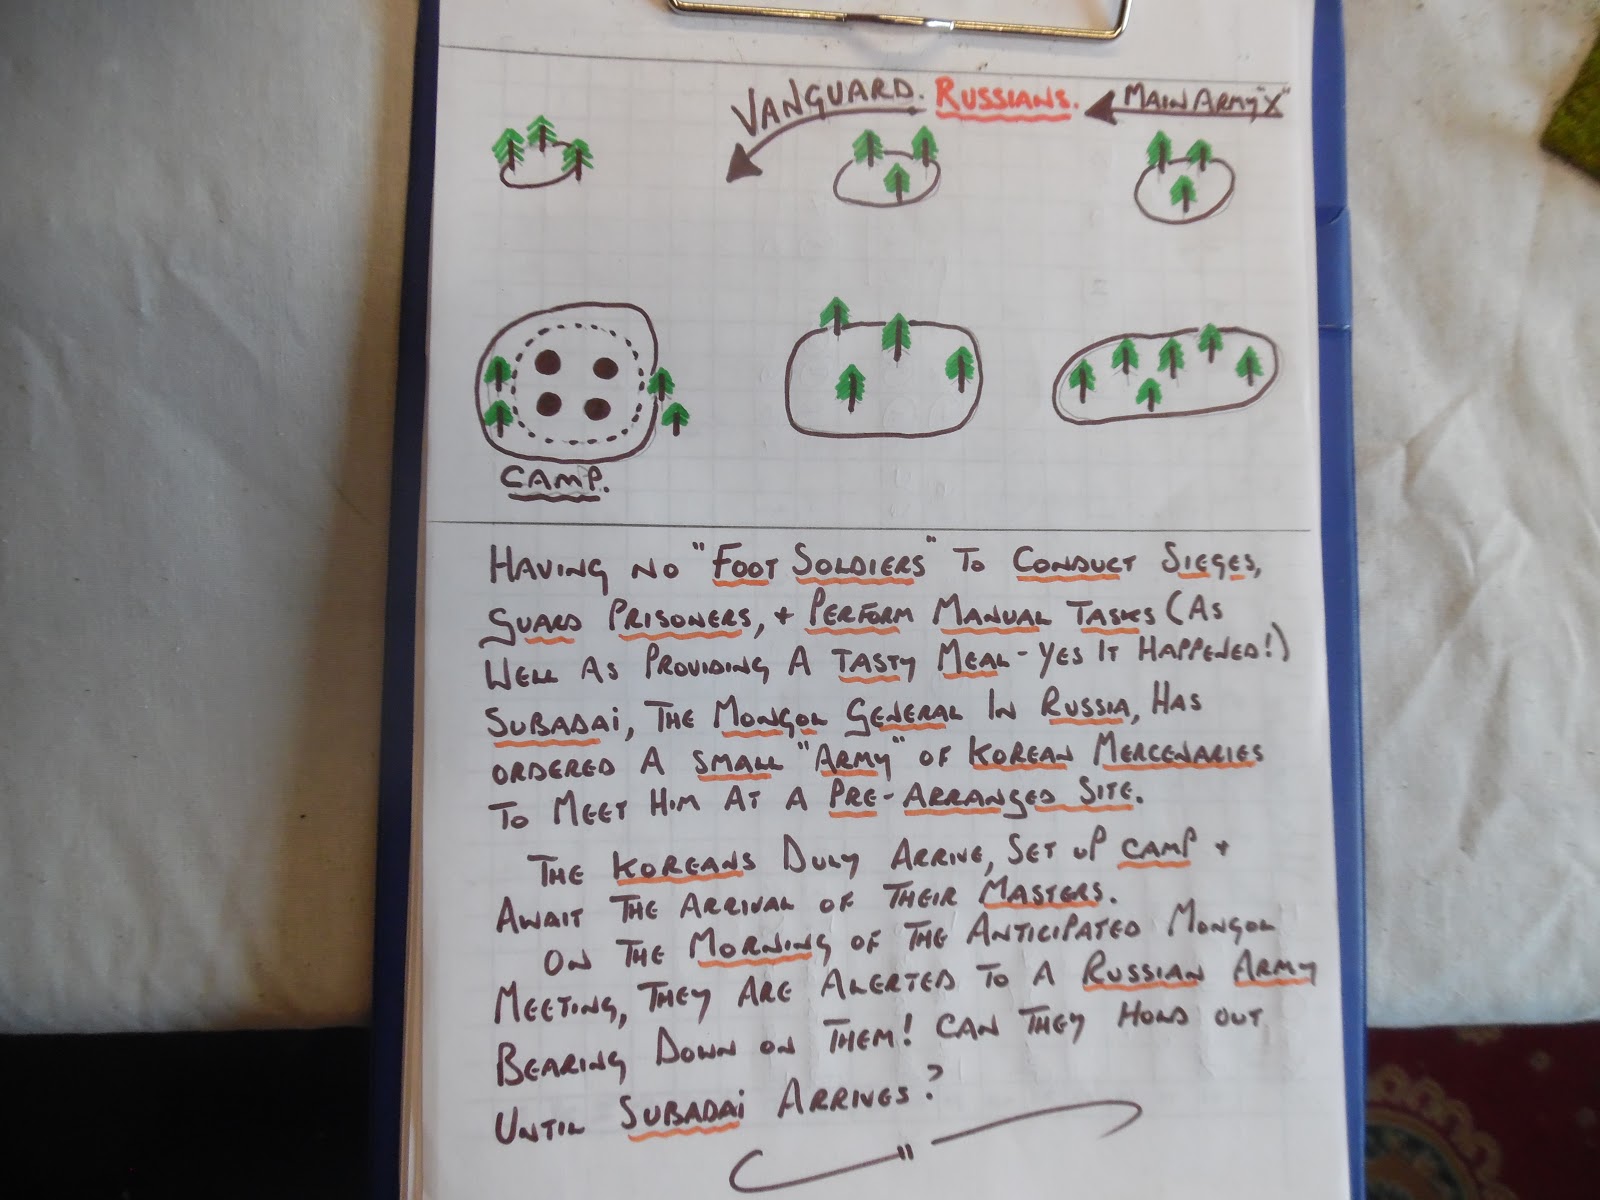 VANGUARD. RUSSIANS. MAIN ARMY "X"
CAMP.
HAVING NO "FOOT SOLDIERS" TO CONDUCT SIEGES,
GUARD PRISONERS, + PERFORM MANUAL TASKS (AS
WELL AS PROVIDING A TASTY MEAL - YES IT HAPPENED!)
SUBADAi, THE MONGOL GENERAL IN RUSSIA, HAS
ORDERED A SMALL "ARMY" OF KOREAN MERCENARIES
TO MEET HIM AT A PRE-ARRANGED SITE.
THE KOREANS DULY ARRIVE, SET UP CAMP +
AWAIT THE ARRIVAL OF THEIR MASTERS.
ON THE MORNING OF THE ANTICIPATED MONGOL
MEETING, THEY ARE ALERTED TO A RUSSIAN ARMY
BEARING DOWN ON THEM! CAN THEY HOLD OUT
UNTIL SUBADAi ARRIVES?